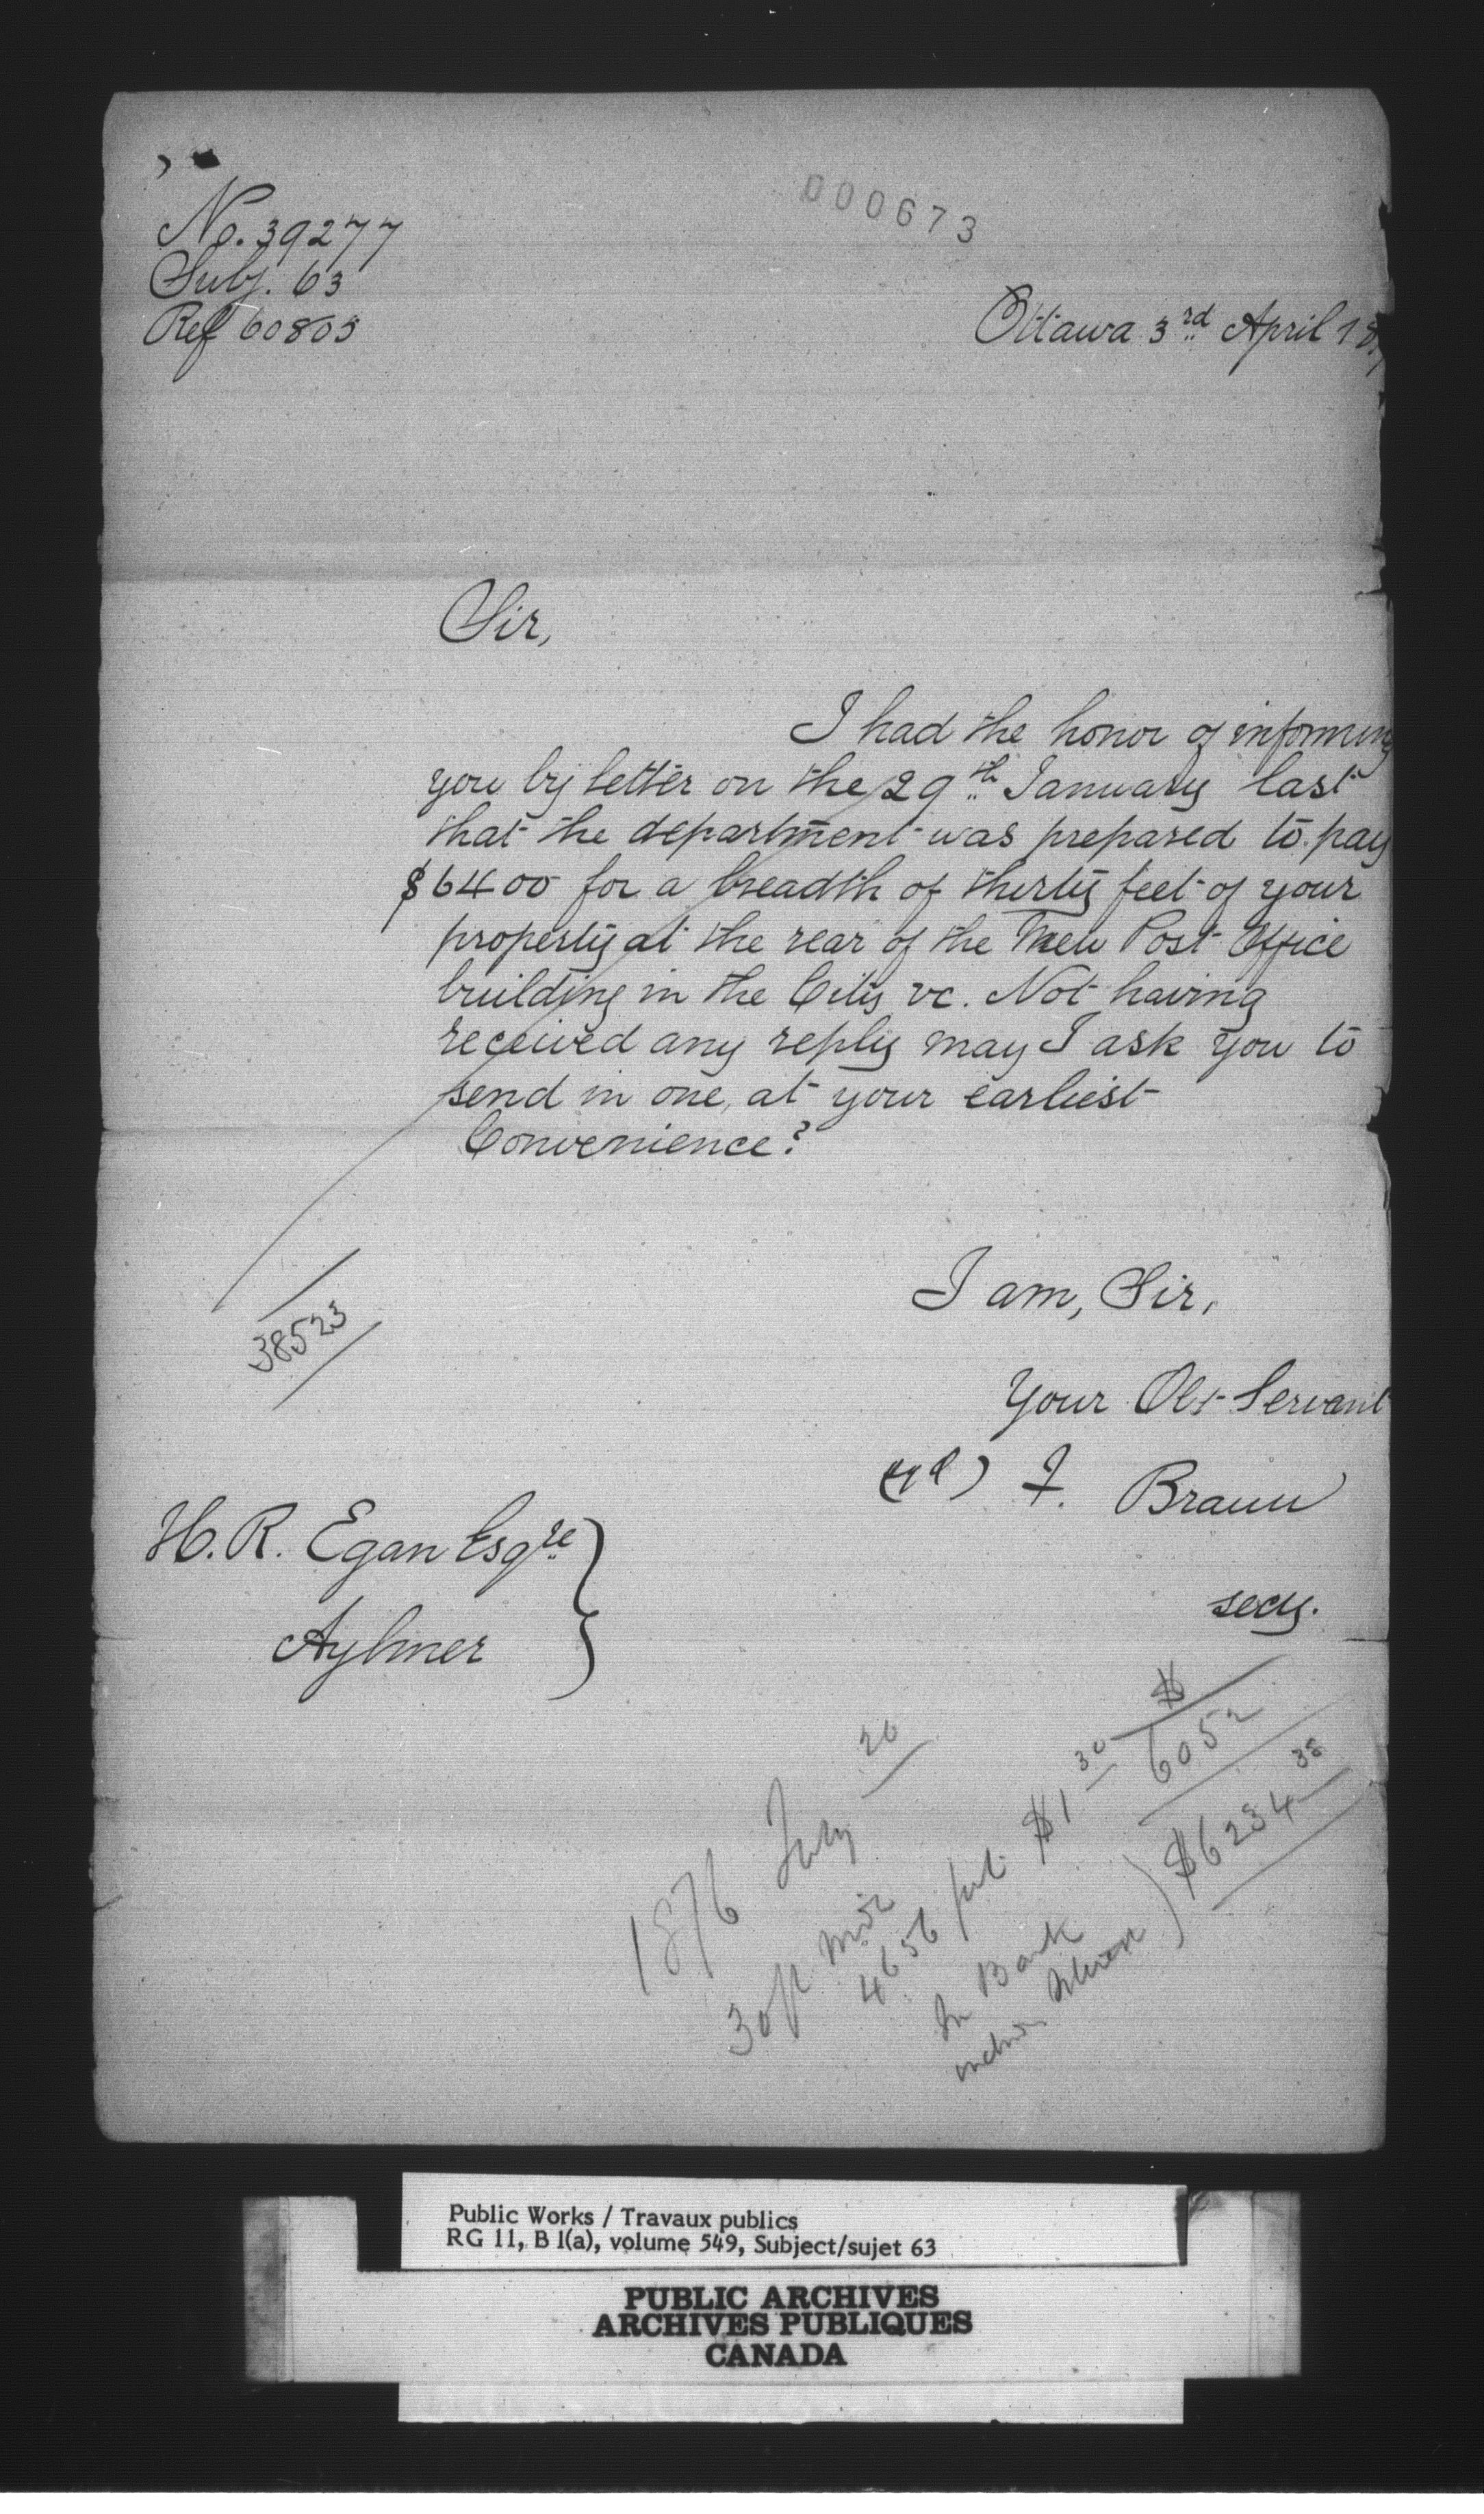 000673
No. 39277
Subj. 63
Ref 60805
Ottawa 3rd April 187
Sir,
I had the honor of informing
you by letter on the 29th January last
that the department was prepared to pay
$6400 for a breadth of thirty feet of your
property at the rear of the New Post Office
building in the City &c. Not having
received any reply may I ask you to
send in one, at your earliest
Convenience?
38523
I am, Sir,
Your Obt Servant
F. Braun
secy.
H. R. Egan Esqre
Aylmer
1876 July 20
30 ft
4656 feet $1 30 $ 6052
In Bank
$6234 38
Public Works / Travaux publics
RG 11, B 1(a), volume 549, Subject/sujet 63
PUBLIC ARCHIVES
ARCHIVES PUBLIQUES
CANADA